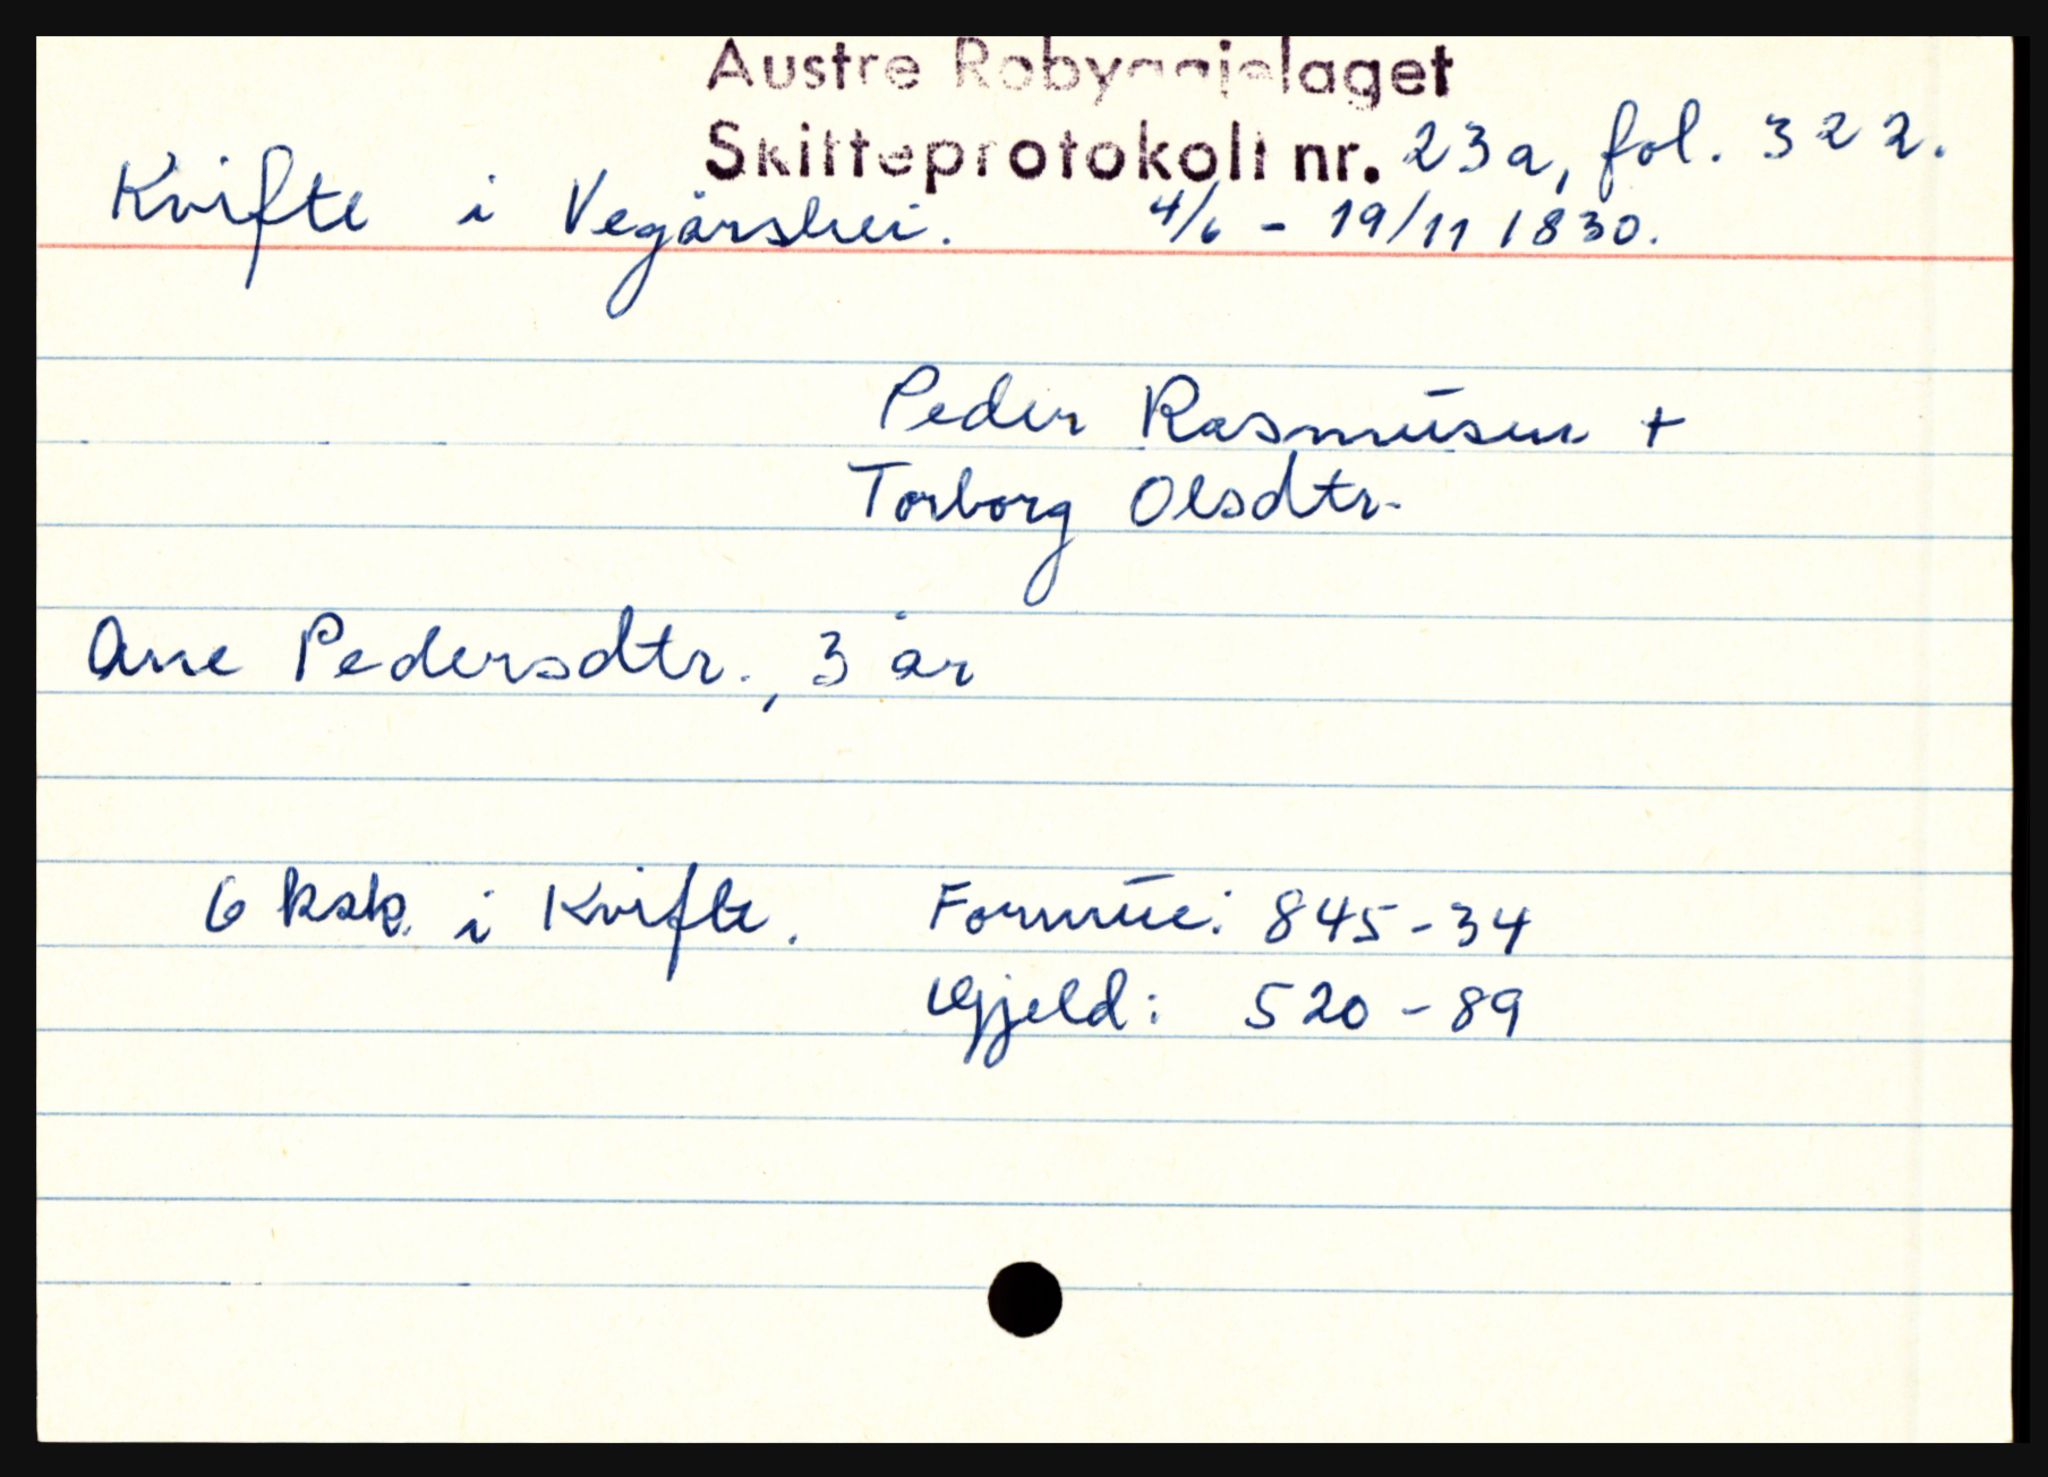 Austre Robyggjelaget
Skifteprotokoll nr. 23a, fol. 322.
Kvifte i Vegårshei. 4/6 - 19/11 1830.
Peder Rasmusen +
Torborg Olsdtr.
Ane Pedersdtr., 3 år
6 ksk. i Kvifte. Formue: 845-34
Gjeld: 520-89